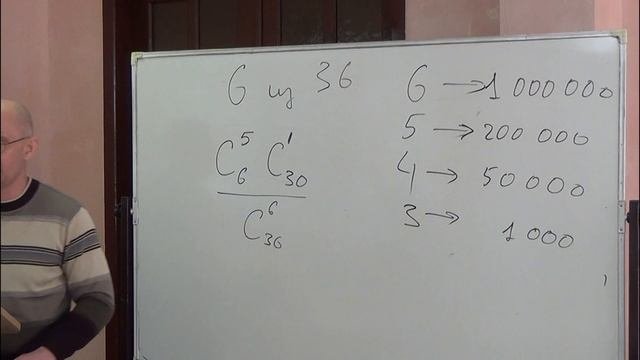 6 из 36
C₆⁵ C₃₀¹
C₃₆⁶
6 → 1 000 000
5 → 200 000
4 → 50 000
3 → 1 000